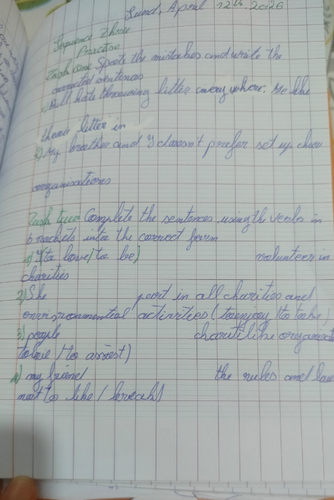 Sund, April 12th, 2026
Sequence Three
Practice
Task one Spots the mistakes and write the
corrected sentences
hate throwing litter every where. We like
litter in
2) My brother and I doesn't prefer set up
organisations
Task two Complete the sentences using the verbs in
brackets into the correct form
1) I (to love / to be) volunteers in
charities
2) She part in all charities and
environmental activities (to enjoy / to take)
3) people charities like
(to assist)
4) my friend the rules and
not to like / break)